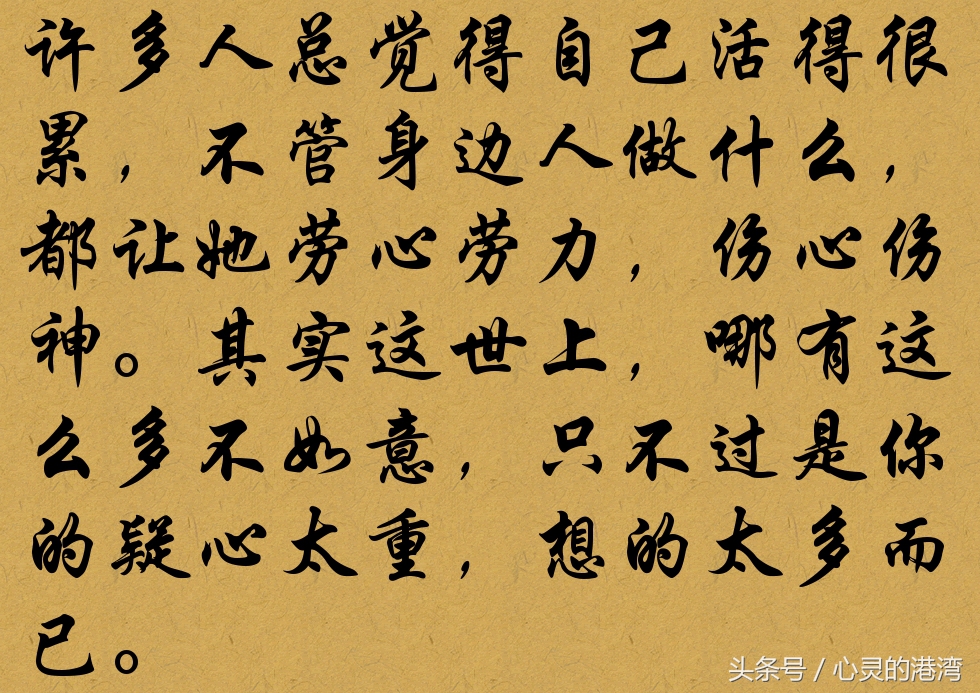 许多人总觉得自己活得很
累，不管身边人做什么，
都让她劳心劳力，伤心伤
神。其实这世上，哪有这
么多不如意，只不过是你
的疑心太重，想的太多而
已。
头条号 / 心灵的港湾